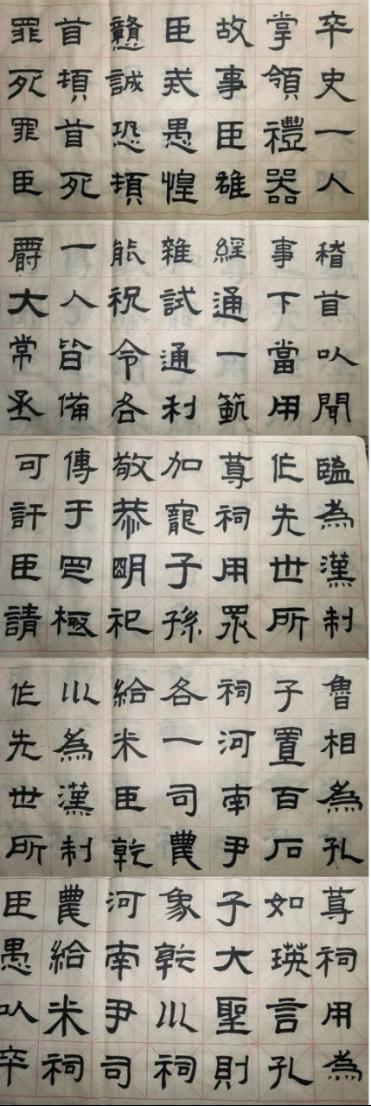 卒史一人
掌領禮器
故事臣雄
臣戒愚惶
戇誠恐頓
首頓首死
罪死罪臣
稽首以聞
事下當用
經通一埶
雜試通利
能祝令各
一人皆備
爵大常丞
臨為漢制
作先世所
尊祠用眾
加寵子孫
敬恭明祀
傳于罔極
可許臣請
魯相為孔
子置百石
祠河南尹
各一司農
給米臣乾
巛為漢制
作先世所
尊祠用為
如瑛言孔
子大聖則
象乾巛祠
河南尹司
農給米祠
臣愚以卒